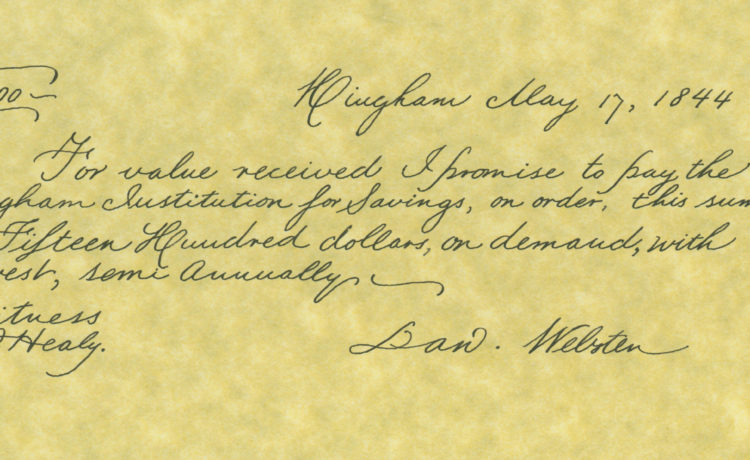 00—
Hingham May 17, 1844
For value received I promise to pay the
gham Institution for Savings, on order, this sum
Fifteen Hundred dollars, on demand, with
rest, semi Annually
itness
Healy.
Dan. Webster